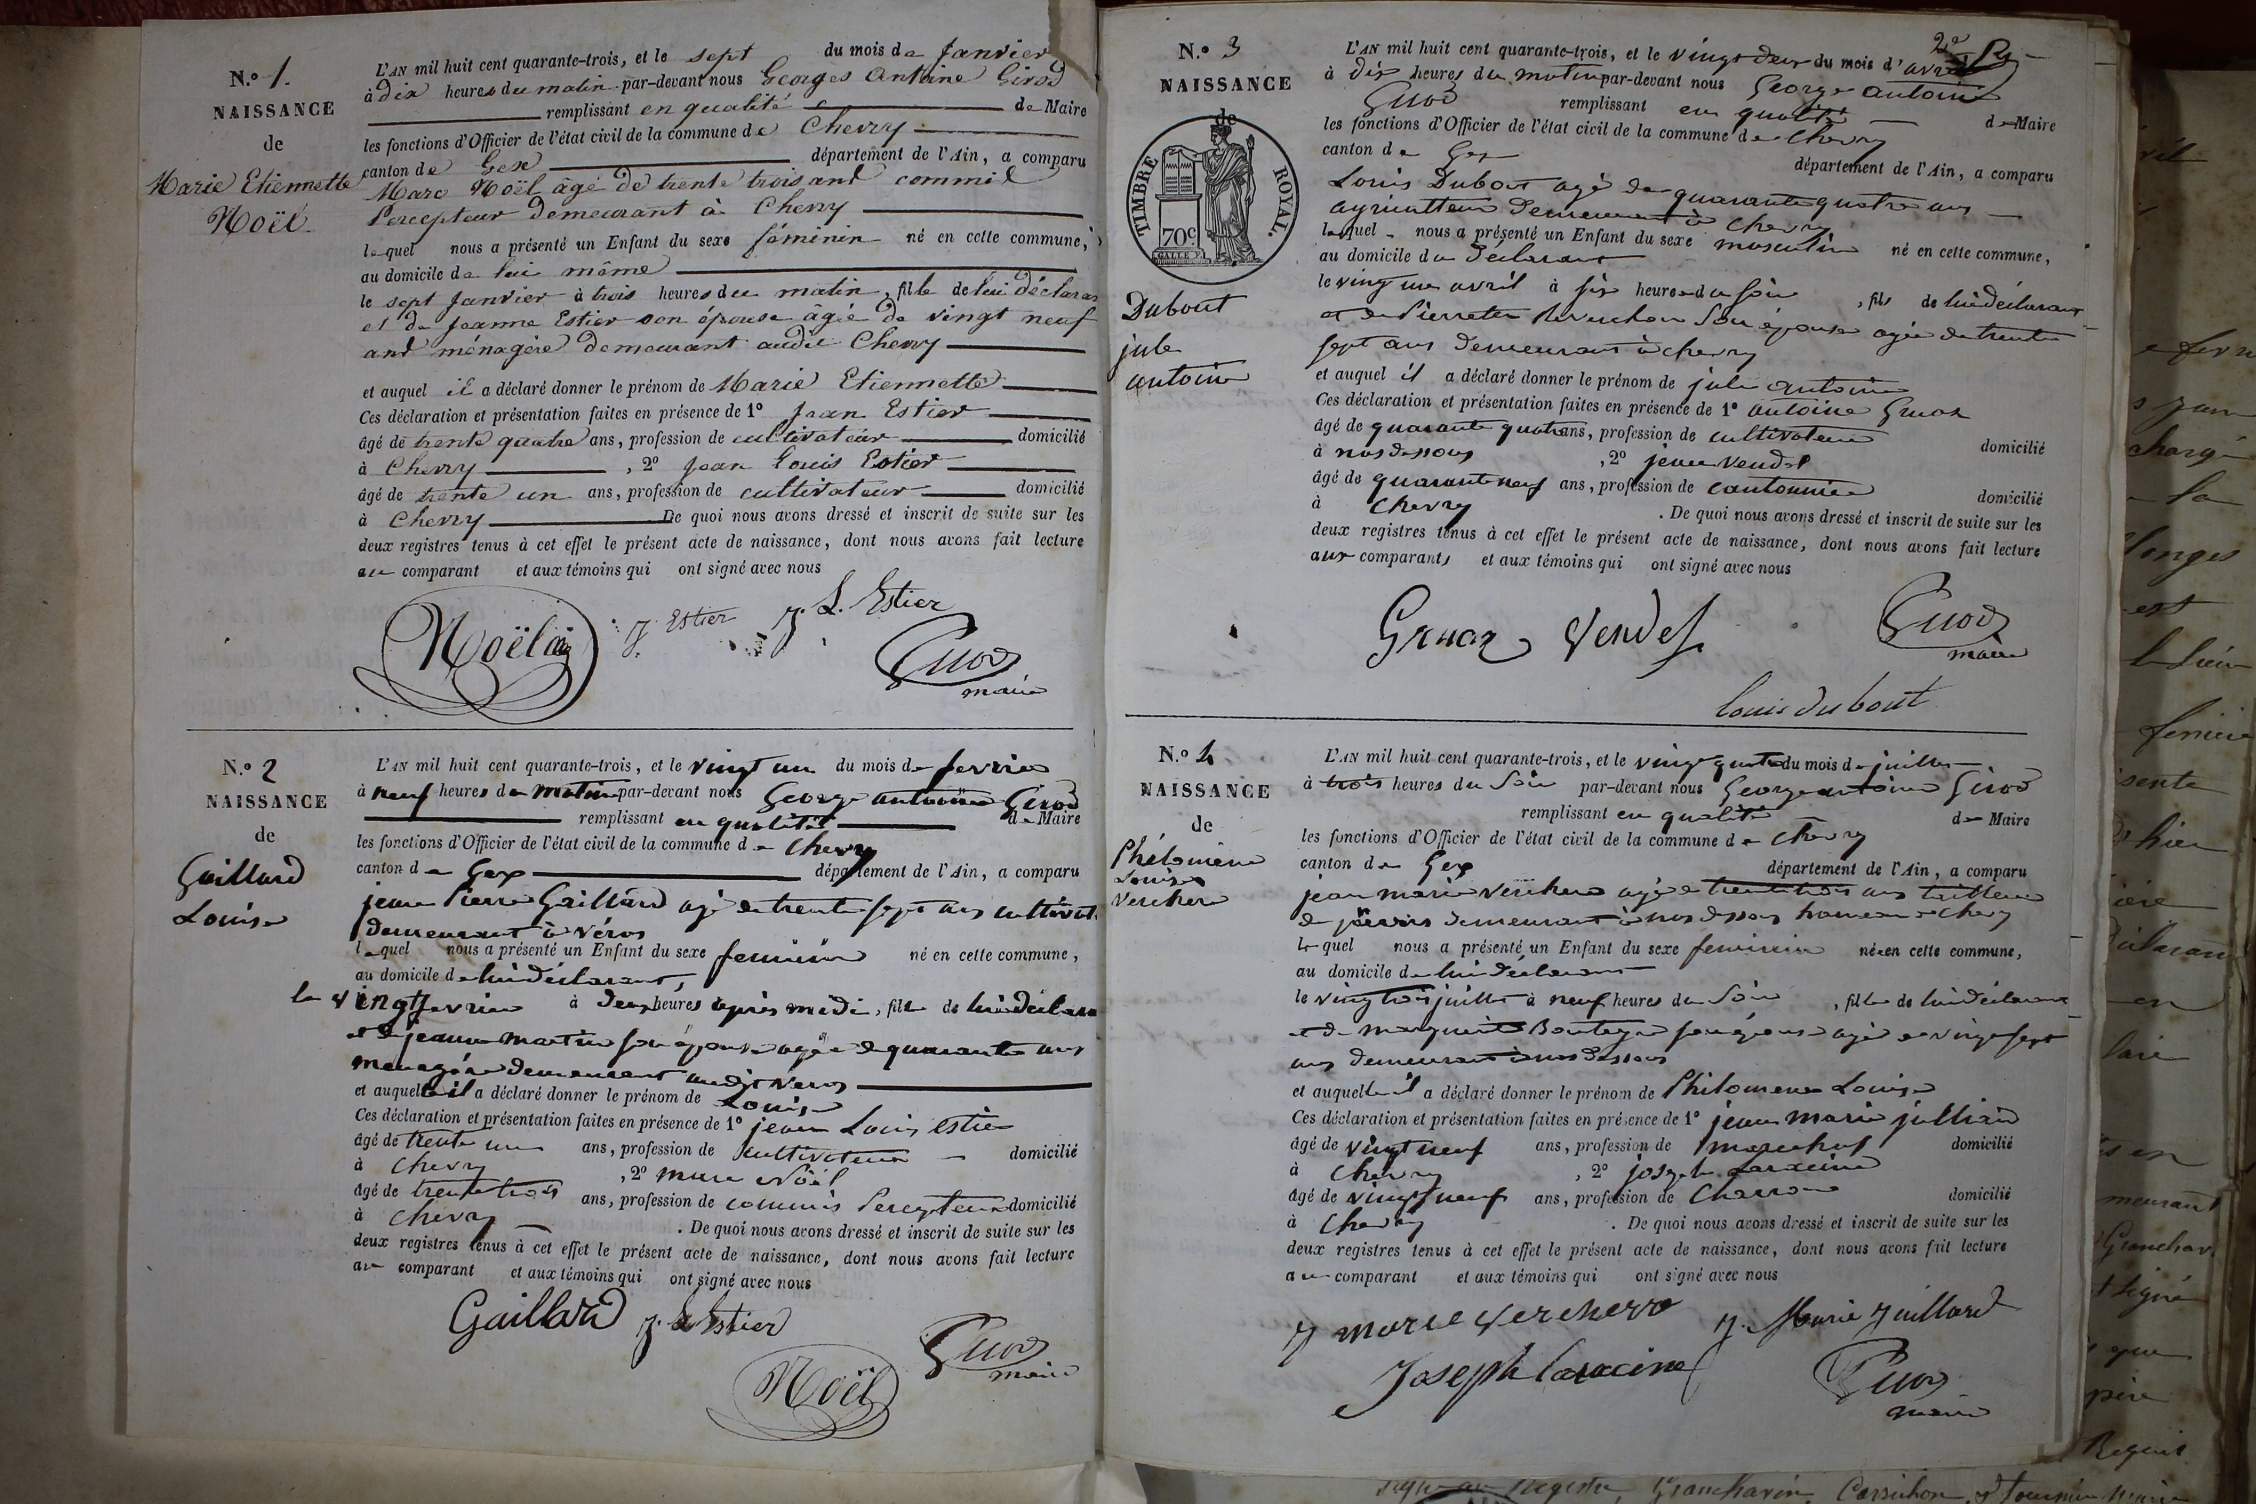 N.o 1.
NAISSANCE
de
Marie Etiennette
Noël.
L'AN mil huit cent quarante-trois, et le sept du mois de Janvier
à dix heures du matin par-devant nous Georges Antoine Girod
remplissant en qualité de Maire
les fonctions d'Officier de l'état civil de la commune de Chevry
canton de Gex département de l'Ain, a comparu
Marc Noël âgé de trente trois ans commis
Percepteur demeurant à Chevry
lequel nous a présenté un Enfant du sexe féminin né en cette commune,
au domicile de lui même
le sept Janvier à trois heures du matin, fille de lui déclarant
et de Jeanne Estier son épouse âgée de vingt neuf
ans ménagère demeurant audit Chevry
et auquel il a déclaré donner le prénom de Marie Etiennette
Ces déclaration et présentation faites en présence de 1o Jean Estier
âgé de trente quatre ans, profession de cultivateur domicilié
à Chevry, 2o Jean Louis Estier
âgé de trente un ans, profession de cultivateur domicilié
à Chevry De quoi nous avons dressé et inscrit de suite sur les
deux registres tenus à cet effet le présent acte de naissance, dont nous avons fait lecture
au comparant et aux témoins qui ont signé avec nous
Noël J. Estier J. L. Estier
Girod
maire
N.o 2
NAISSANCE
de
Gaillard
Louise
L'AN mil huit cent quarante-trois, et le vingt un du mois de fevrier
à neuf heures du matin par-devant nous George antoine Girod
remplissant en qualité de Maire
les fonctions d'Officier de l'état civil de la commune de Chevry
canton de Gex département de l'Ain, a comparu
jean Pierre Gaillard agé de trente sept ans cultivat
demeurant à Véros
lequel nous a présenté un Enfant du sexe feminin né en cette commune,
au domicile de lui déclarant,
le vingt fevrier à deux heures après midi, fille de lui déclara
et de jeanne Martin son épouse agée de quarante ans
menagére demeurant audit Veros
et auquelle il a déclaré donner le prénom de Louise
Ces déclaration et présentation faites en présence de 1o jean Louis estier
âgé de trente un ans, profession de cultivateur domicilié
à Chevry, 2o marc Noël
âgé de trente trois ans, profession de commis Percepteur domicilié
à Chevry. De quoi nous avons dressé et inscrit de suite sur les
deux registres tenus à cet effet le présent acte de naissance, dont nous avons fait lecture
au comparant et aux témoins qui ont signé avec nous
Gaillard J. L. Estier
Girod
maire
Noël
N.o 3
NAISSANCE
de
TIMBRE ROYAL.
70c.
Dubout
jule
antoine
L'AN mil huit cent quarante-trois, et le vingt deux du mois d'avril
à dix heures du matin par-devant nous George antoine
Girod remplissant en qualité de Maire
les fonctions d'Officier de l'état civil de la commune de Chevry
canton de Gex département de l'Ain, a comparu
Louis Dubout agé de quarante quatre ans
agriculteur demeurant à Chevry
lequel nous a présenté un Enfant du sexe masculin né en cette commune,
au domicile du déclarant
le vingt un avril à six heures du soir, fils de lui déclarant
et de Pierrette son épouse agée de trente
sept ans demeurant à chevry
et auquel il a déclaré donner le prénom de jule antoine
Ces déclaration et présentation faites en présence de 1o antoine Gruaz
âgé de quarante quatre ans, profession de cultivateur domicilié
à nas dessous, 2o jean Vendel
âgé de quarante neuf ans, profession de cantonnier domicilié
à Chevry. De quoi nous avons dressé et inscrit de suite sur les
deux registres tenus à cet effet le présent acte de naissance, dont nous avons fait lecture
aux comparants et aux témoins qui ont signé avec nous
Gruaz Vendel Girod
maire
louis dubout
N.o 4
NAISSANCE
de
Philomène
Louise
Verchere
L'AN mil huit cent quarante-trois, et le vingt quatre du mois de juillet
à trois heures du Soir par-devant nous George antoine Girod
remplissant en qualité de Maire
les fonctions d'Officier de l'état civil de la commune de Chevry
canton de Gex département de l'Ain, a comparu
jean marie Verchere agé de trente trois ans tailleur
de pierres demeurant à nas dessous hameau de Chevry
lequel nous a présenté un Enfant du sexe feminin née en cette commune,
au domicile de lui déclarant
le vingt trois juillet à neuf heures du Soir, fille de lui déclarant
et de marguerite son épouse agée de vingt sept
ans demeurant à nas dessous
et auquelle il a déclaré donner le prénom de Philomene Louise
Ces déclaration et présentation faites en présence de 1o jean marie julliard
âgé de vingt neuf ans, profession de marechal domicilié
à Chevry, 2o joseph Laracine
âgé de vingt neuf ans, profession de Charron domicilié
à Chevry. De quoi nous avons dressé et inscrit de suite sur les
deux registres tenus à cet effet le présent acte de naissance, dont nous avons fait lecture
au comparant et aux témoins qui ont signé avec nous
J marie Verchere J. Marie Juillard
Joseph Laracine Girod
maire